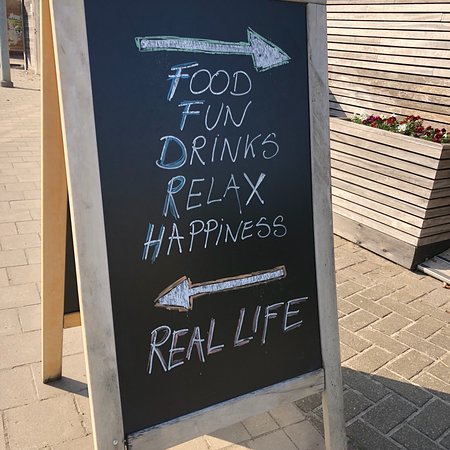 FOOD
FUN
DRINKS
RELAX
HAPPINESS
REAL LIFE